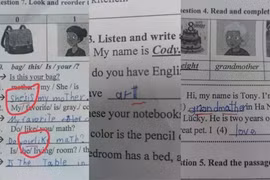 estion 7. Look and reorder
0
1
bag/ this/ Is / your /?
Is this your bag?
mother/ my / She / is
She is my mother
My/ favorite/ is/ gray/ co
My favorite color
Do/ like/ you/ math?
Do you like math?
Is/ / living/ room? / th
Is The Table in
3. Listen and write
My name is Cody.
do you have Engli
ve art
ese your notebooks
color is the pencil
edroom has a bed, a
estion 4. Read and complet
eight
grandmother
Hi, my name is Tony. I'm
grandmother
in Ha
Lucky. He is two years o
reat pet. I (4) love
tion 5. Read the passage